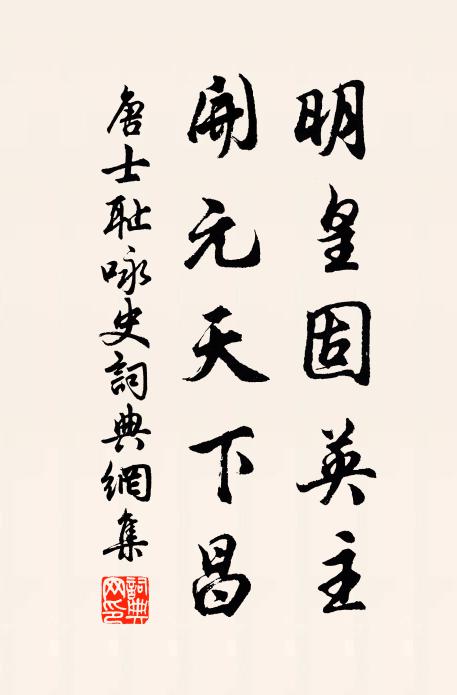 明皇固英主
開元天下昌
唐士耻咏史詞典網集
詞典
网印